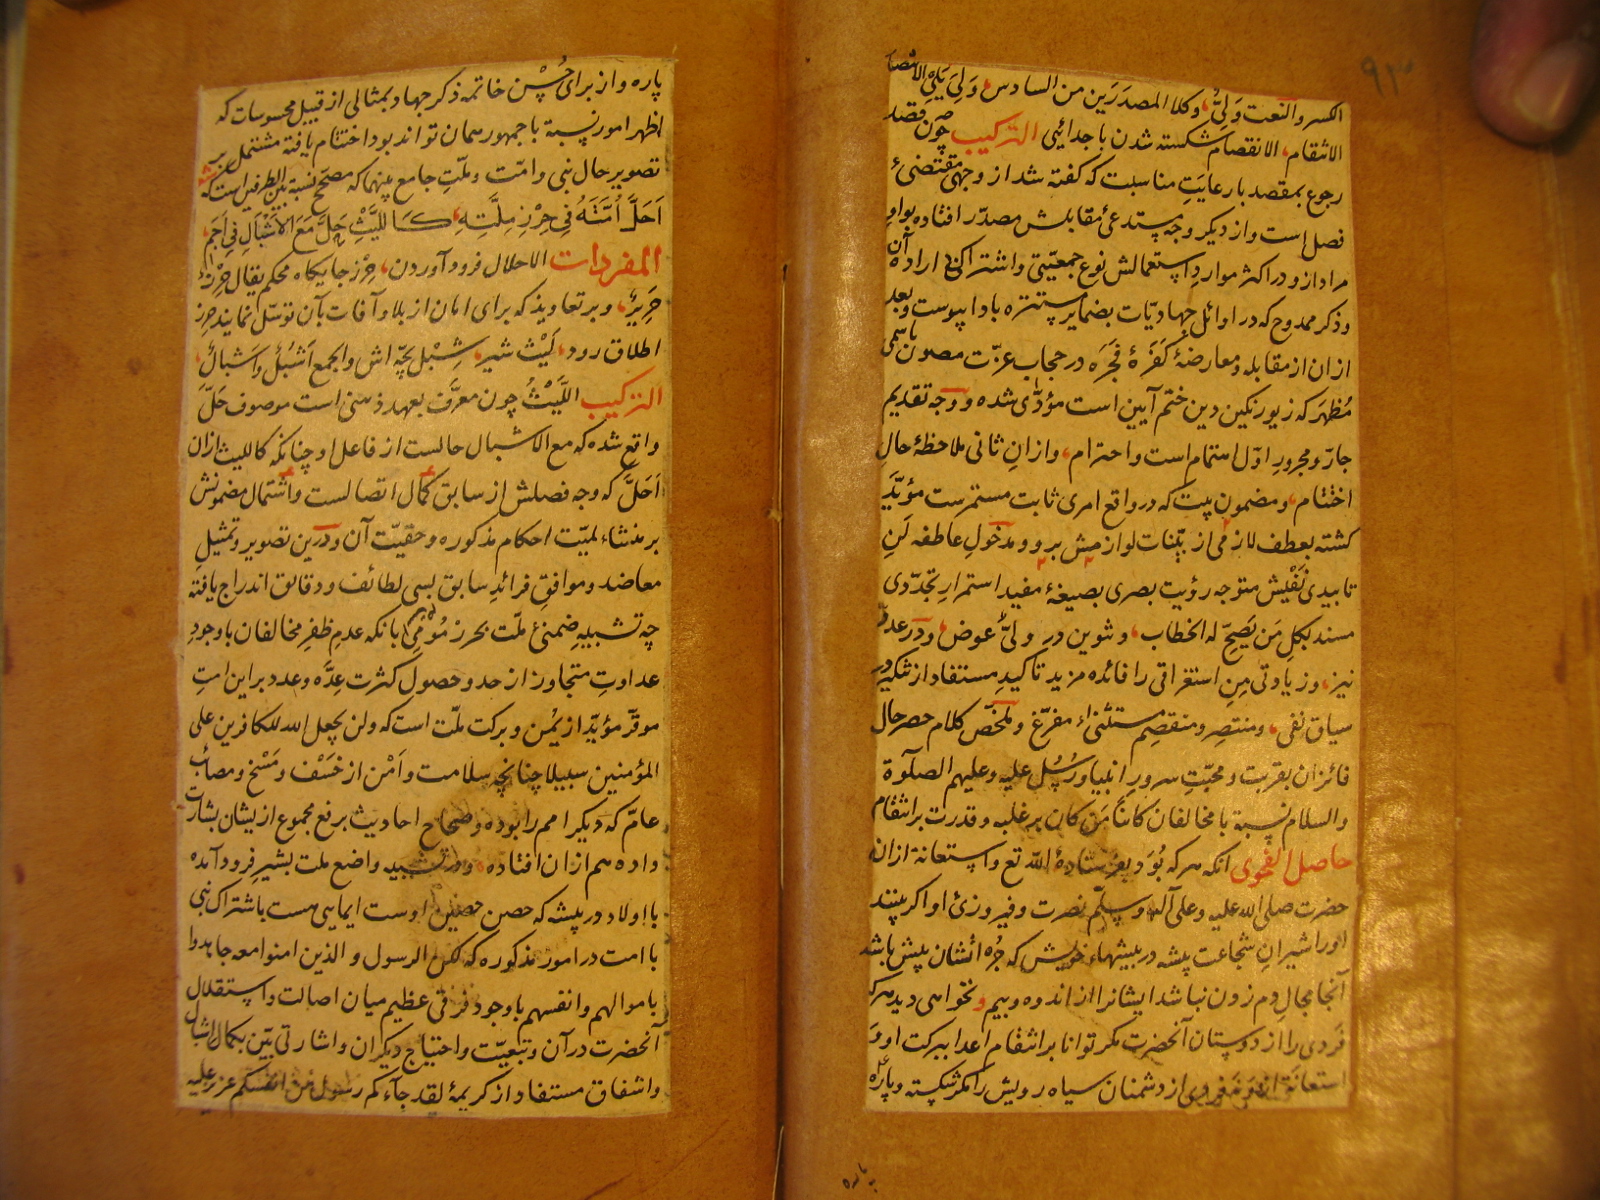 ۹۳
الکسر والنعت وَلِیٌّ، وکلا المصدَرَین من السادس، وَلِیَ یَلِی الانتصار
الانتقام، الانقصام شکسته شدن با جدائیی الترکیب چون قصد
رجوع بمقصد بارعایَتِ مناسبت که کفته شد از وجهی مقتضیٔ
فصل است واز دیکر وجه مستدعیٔ مقابلش مصدّر افتاده بواوِ
مراد از و در اکثر مواردِ استعمالش نوع جمعیّتی واشتراکی ارادهٔ آن
وذکر ممدوح که در اوائل جهادیّات بضمایر مستتره بادا پیوست وبعد
ازان از مقابله ومعارضهٔ کَفَرَهٔ فَجَرَه در حجاب عزّت مصون باسمی
مُظهَر که زیور نکین دین ختم آیین است مؤدّی شده و وجه تقدیم
جارّ ومجرورِ اوّل استمام است واحترام، وازانِ ثانی ملاحظهٔ حالِ
اختتام، ومضمون بیت که در واقع امری ثابت مستمرست مؤیَّد
کشته بعطف لازمی از بیّنات لوازمش برو ومدخولِ عاطفه لَنِ
تابیدی نَفْیَش متوجه رؤیت بصری بصیغهٔ مفیدِ استمرارِ تجدّدی
مسند بکلِ مَن یَصِحّ له الخطاب، وتنوین در ولیٍّ عوض، ودر عدوّ
نیز، وزیادتی مِنِ استغراقی را فائده مزید تاکیدِ مستفاد از تنکیر در
سیاق نفی، ومنتصِر ومنقصِم مستثناء مفرّغ وملخّص کلام حصرِ حال
فائزان بقربت ومحبّتِ سرورِ انبیا ورُسُل علیه وعلیهم الصلوة
والسلام نسبة با مخالفان کائناً مَن کان بر غلبه وقدرت بر انتقام
حاصل الفحوی آنکه هر که بُوَد بفرستادهٔ الله تع واستعانة ازان
حضرت صلی الله علیه وعلی آله وسلّم نصرت وفیروزیٔ او اکر بینند
اورا شیرانِ شجاعت پیشه در بیشهاء خویش که جُزه اُنشان پیش باشد
آنجا مجالِ دم زدن نباشد ایشانرا از اندوه وبیم ونخواهی دید هرکز
فردی را از دوستان آنحضرت مکر توانا بر انتقامِ اعدا ببرکت او وَ
استعانة از از دشمنان سیاه رویش را مکر شکسته وپاره
پاره
پاره واز برای حُسْن خاتمه ذکر جهاد بمثالی از قبیل محسوسات که
اظهر امور نسبة با جمهور سمان تواند بود اختتام یافته مشتمل بر
تصویر حال نبی وامّت وملّتِ جامع بینهما که مصحّح نسبة بین الطرفین است که
اَحَلَّ اُمَّتَهُ فِی حِرْزِ مِلَّتِهِ، کَاللَّیْثِ حَلَّ مَعَ الاَشْبَالِ فِی اَجَمِ
المفردات الاحلال فرود آوردن، حِرْز جایکاه محکم یقال حِرْزٌ
حَرِیزٌ، وبر تعاویذ که برای امان از بلا وآفات بآن توسّل نمایند حِرْز
اطلاق رود، لَیْث شیر، شِبْل بچّه اش والجمع اَشْبُل واَشبال،
الترکیب اللَّیْثُ چون معرَّف بعهد ذهنی است موصوف حَلَّ
واقع شده که مع الاشبال حالست از فاعل او چنانکه کاللیث ازان
اَحَلَّ که وجه فصلش از سابق کمال اتصالست واشتمال مضمونش
بر منشاء لمیّت احکام مذکوره وحقیّت آن ودرین تصویر وتمثیلِ
معاضد وموافقِ فرائدِ سابق بسی لطائف ودقائق اندراج یافته
چه تشبیهِ ضمنیٔ ملّت بحرز مُومی بآنکه عدمِ ظفرِ مخالفان باوجود
عداوتِ متجاوز از حد وحصول کثرت عِدَّه وعدد بر این امتِ
موقّرِ مؤیّد از یُمن وبرکت ملّت است که ولن یجعل الله للکافرین علی
المؤمنین سبیلا چنانچه سلامت واَمْن از خَسْف ومَسْخ ومصائب
عامّ که دیکر امم را بوده وصحاح احادیث برفع مجموع ازیشان بشارت
داده هم ازان افتاده، ودر تشبیه واضع ملت بشیرِ فرود آمده
با اولاد در بیشه که حصن حصینِ اوست ایمایی هست باشتراک نبی
با امت در امور مذکوره که لکن الرسول والذین امنوا معه جاهدوا
باموالهم وانفسهم باوجود فرقی عظیم میان اصالت واستقلال
آنحضرت درآن وتبعیّت واحتیاج دیکران واشارتی بیّن بکمال اشبال
واشفاق مستفاد از کریمهٔ لقد جآءکم رسول من انفسکم عزیز علیه